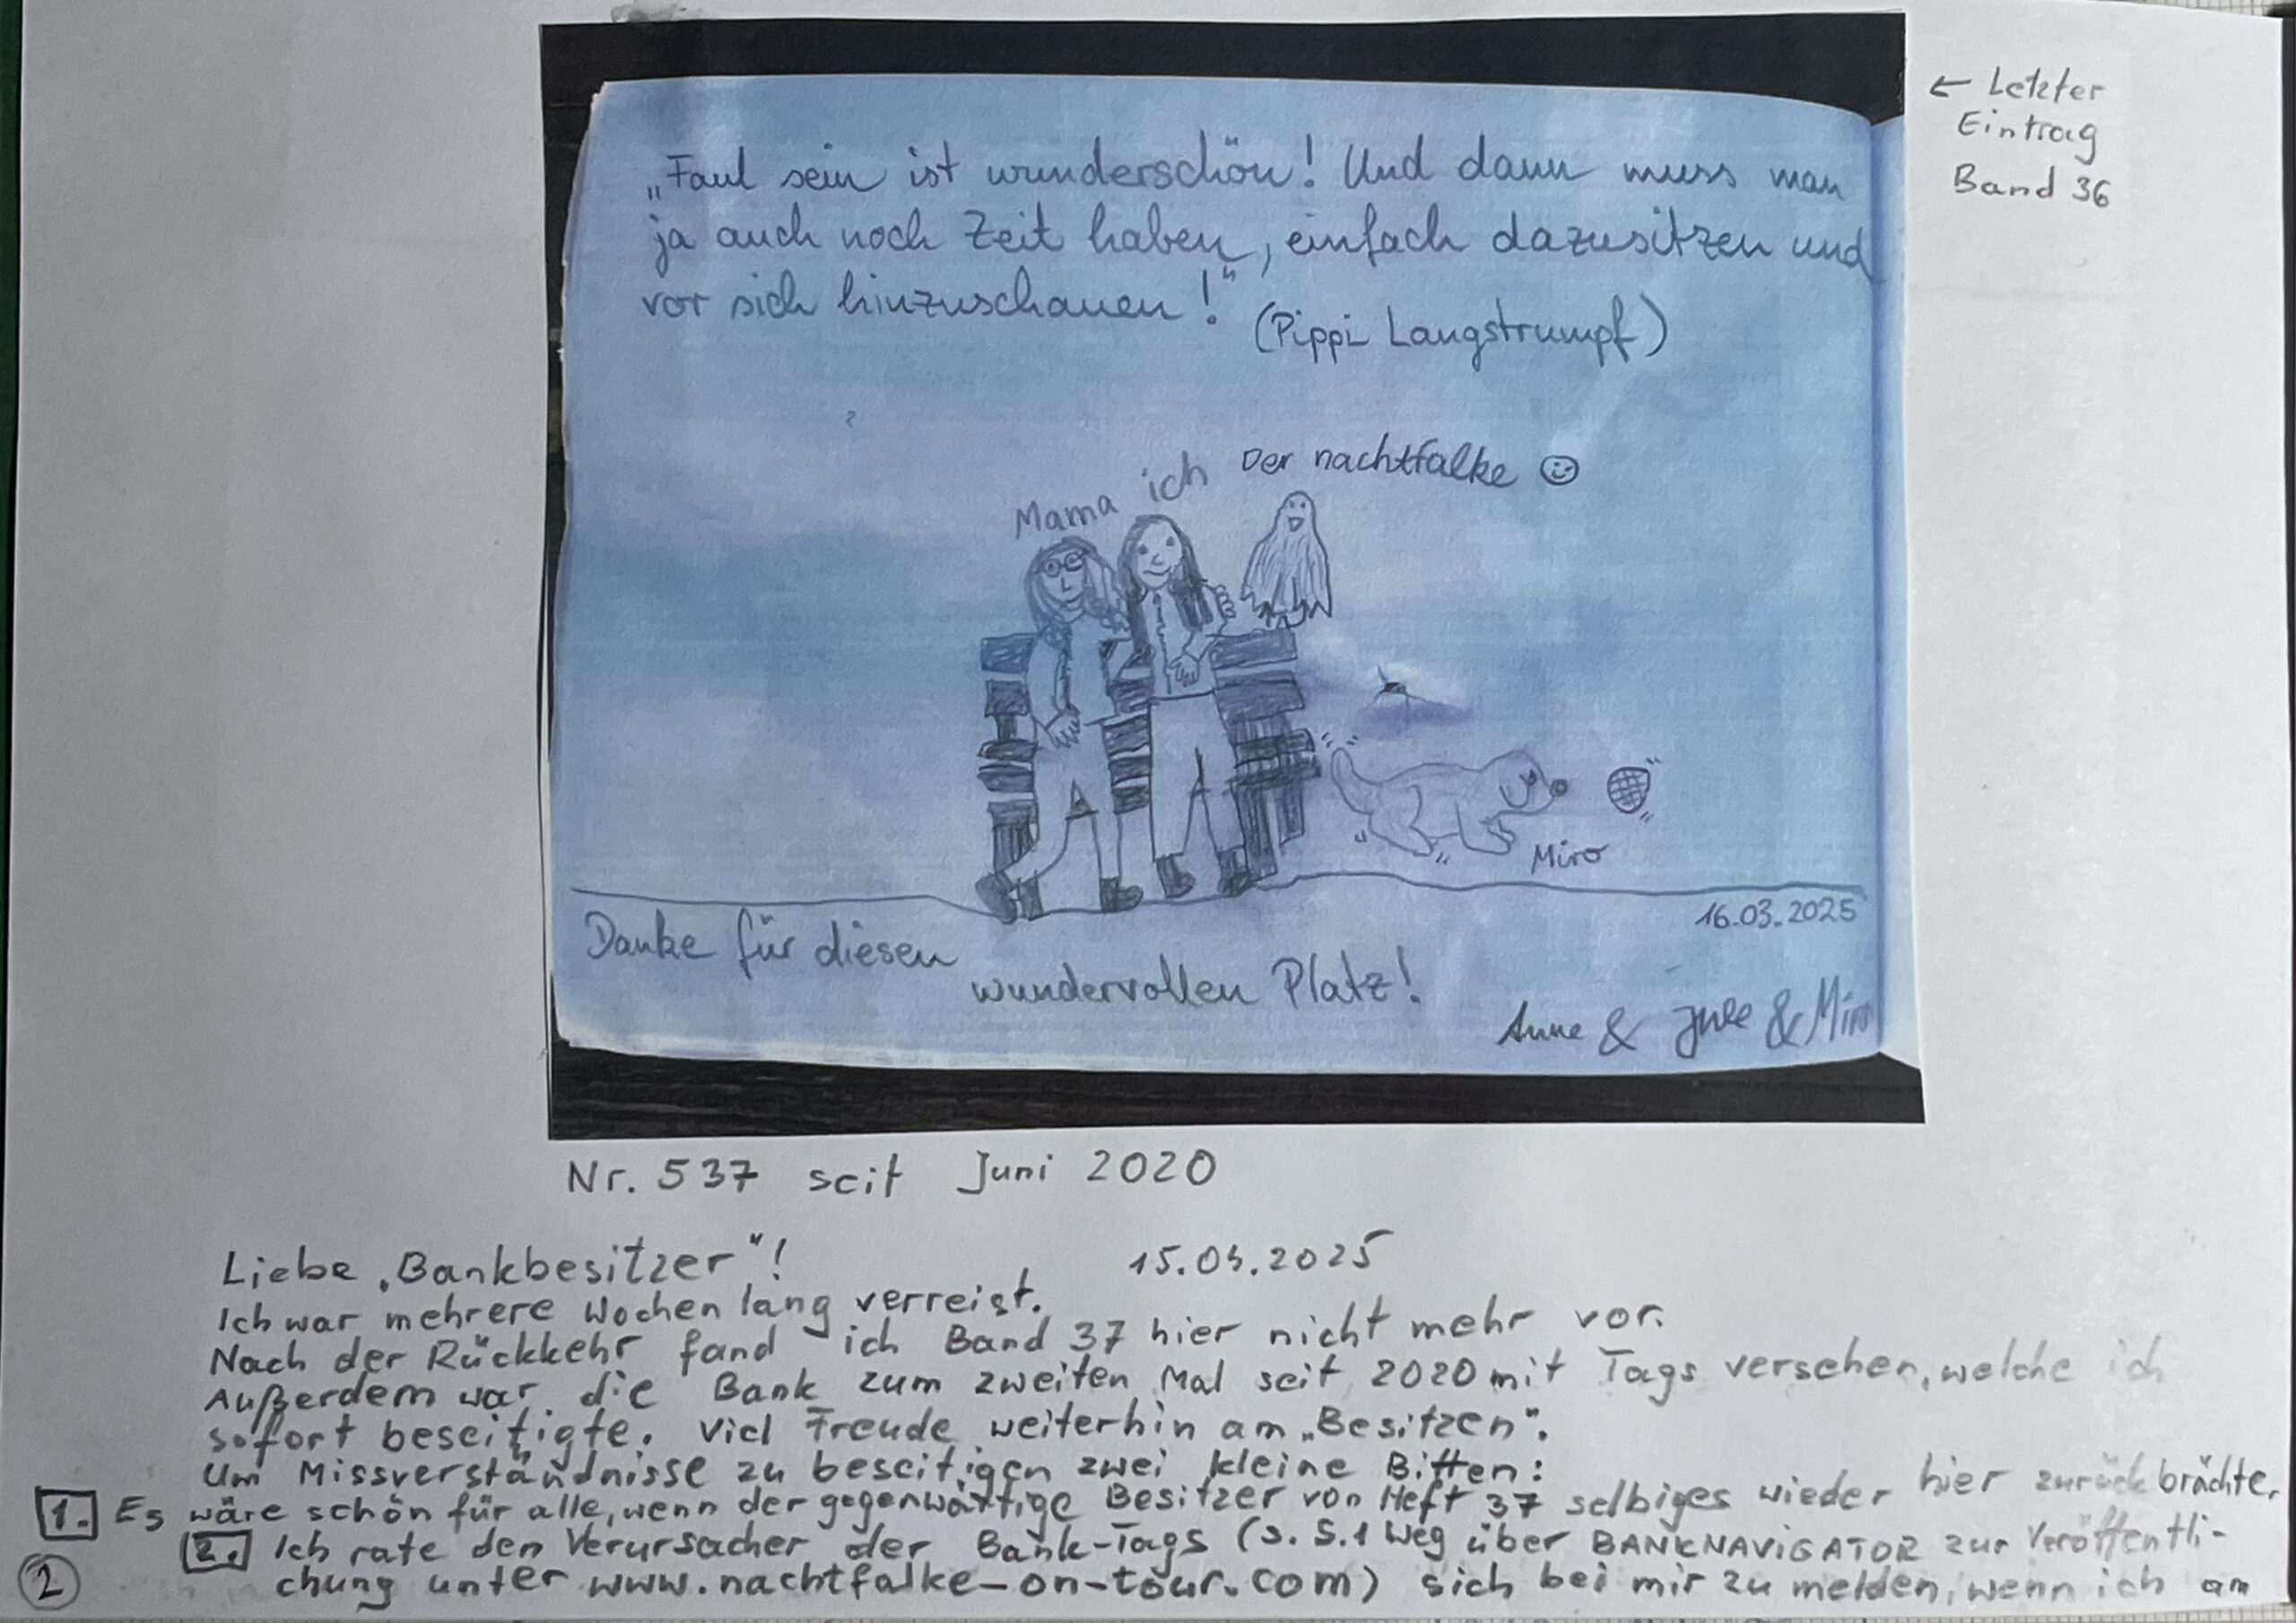 ← Letzter
Eintrag
Band 36
„Faul sein ist wunderschön! Und dann muss man
ja auch noch Zeit haben, einfach dazusitzen und
vor sich hinzuschauen!“
(Pippi Langstrumpf)
Der nachtfalke ☺
Mama ich
Miro
16.03.2025
Danke für diesen
wundervollen Platz!
Anne & Jule & Miro
Nr. 537 seit Juni 2020
Liebe „Bankbesitzer“! 15.04.2025
Ich war mehrere Wochen lang verreist.
Nach der Rückkehr fand ich Band 37 hier nicht mehr vor.
Außerdem war die Bank zum zweiten Mal seit 2020 mit Tags versehen, welche ich
sofort beseitigte. Viel Freude weiterhin am „Besitzen“.
Um Missverständnisse zu beseitigen zwei kleine Bitten:
1. Es wäre schön für alle, wenn der gegenwärtige Besitzer von Heft 37 selbiges wieder hier zurück brächte.
2. Ich rate den Verursacher der Bank-Tags (s. S.1 Weg über BANKNAViGATOR zur Veröffentli-
chung unter www.nachtfalke-on-tour.com) sich bei mir zu melden, wenn ich am
2